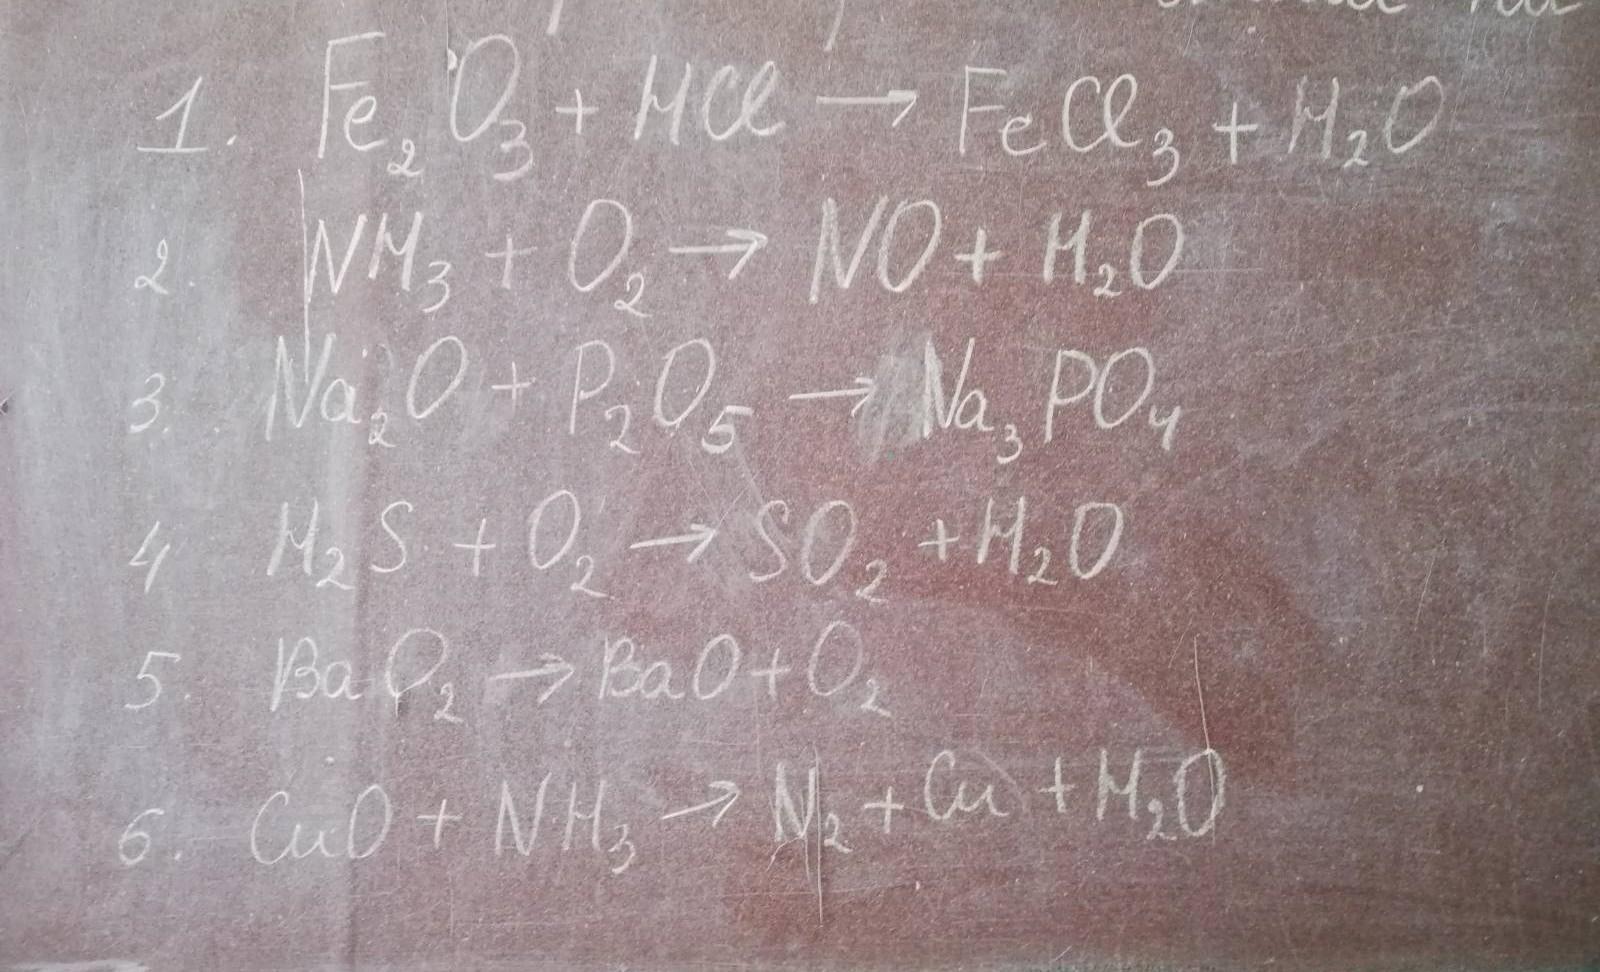 1. Fe₂O₃ + HCl → FeCl₃ + H₂O
2. NH₃ + O₂ → NO + H₂O
3. Na₂O + P₂O₅ → Na₃PO₄
4 H₂S + O₂ → SO₂ + H₂O
5. BaO₂ → BaO + O₂
6. CuO + NH₃ → N₂ + Cu + H₂O